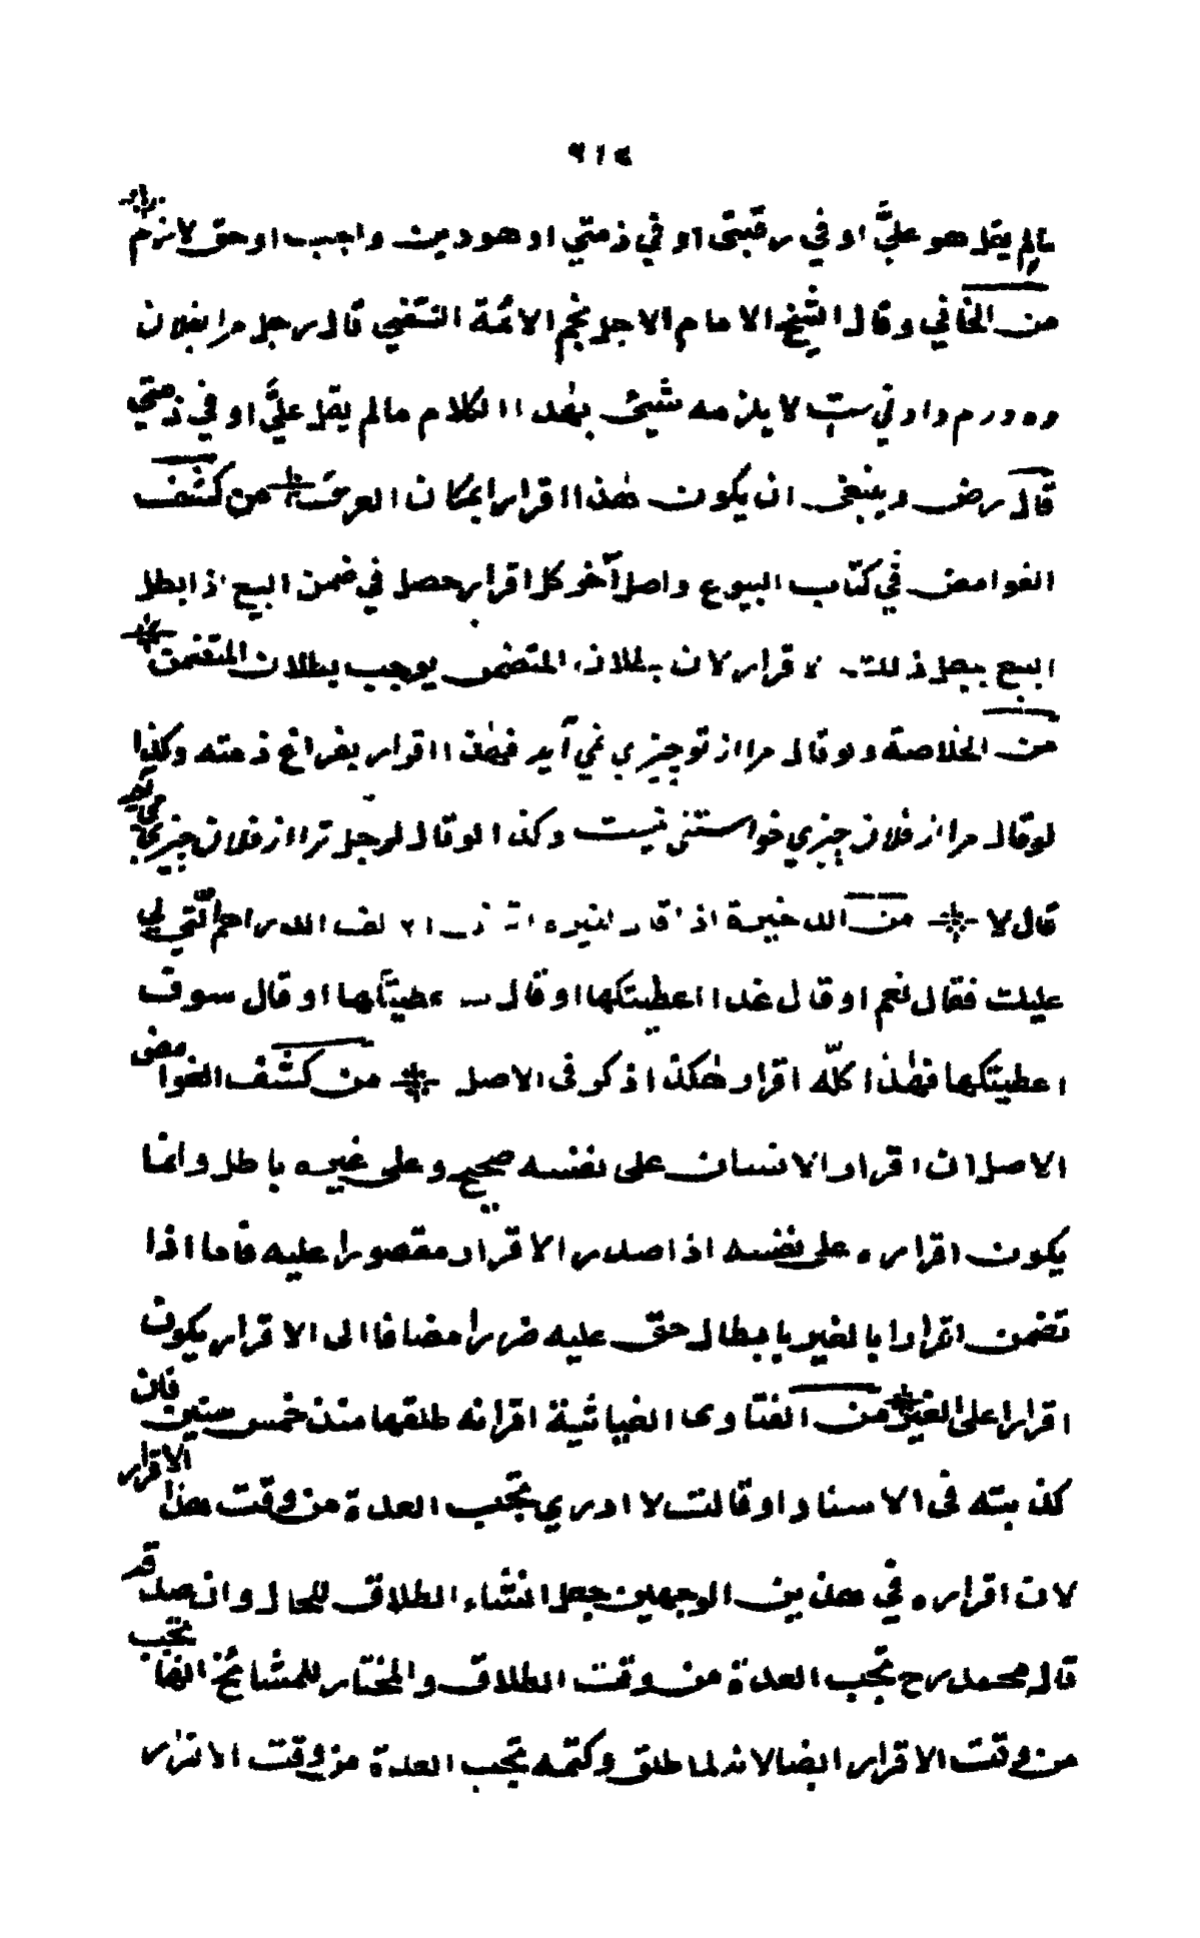 ٩١٤
مالم يقل هو عليَّ او في رقبتي او في ذمتي او هو دين واجب او حق لازم
من الخاني وقال الشيخ الامام الاجل نجم الائمة النسفي قال رجل مرا بفلان
ده درم دادني ست لا يلزمه شيئ بهذا الكلام مالم يقل عليَّ او في ذمتي
قال رض وينبغي ان يكون هذا اقرارا بمكان العرف من كشف
الغوامض في كتاب البيوع واصل آخر كل اقرار حصل في ضمن البيع اذا بطل
البيع يبطل ذلك الاقرار لان بطلان المتضمن يوجب بطلان المتضمن
من الخلاصة ولو قال مرا از تو چيزي نمي آيد فهذا اقرار بفراغ ذمته وكذا
لو قال مرا از فلان چيزي خواستني نيست وكذا لو قال لرجل ترا از فلان چيزي مي آيد
قال لا من الذخيرة اذا قال لغيره الف الدراهم التي لي
عليك فقال نعم او قال غدا اعطيتكها او قال اعطيتكها او قال سوف
اعطيتكها فهذا كلّه اقرار هكذا ذكر في الاصل من كشف الغوامض
الاصل ان اقرار الانسان على نفسه صحيح وعلى غيره باطل وانما
يكون اقراره على نفسه اذا صدر الاقرار مقصورا عليه فاما اذا
تضمن اقرارا بالغير بابطال حق عليه ضررا مضافا الى الاقرار يكون
اقرارا على الغير من الفتاوى الغياثية اقر انه طلقها منذ خمس سنين فان
كذبته في الاسناد او قالت لا ادري تجب العدة من وقت هذا الاقرار
لان اقراره في هذين الوجهين جعل انشاء الطلاق للحال وان صدقه
قال محمد رح تجب العدة من وقت الطلاق والمختار للمشائخ انها تجب
من وقت الاقرار ايضا لانه لما طلق وكتمه تجب العدة من وقت الاقرار